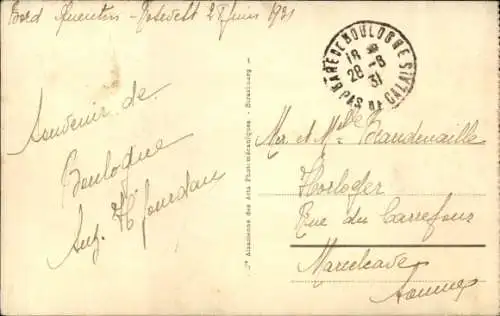 Bord Quentin - Rosevelt 28 juin 1931
Souvenir de
Boulogne
Aug. H. Jourdan
GARE DE BOULOGNE S
18
28 - 6
31
PAS DE CALAIS
Cie Alsacienne des Arts Photomécaniques - Strasbourg
Mr et Mlle Baudenaille
Horloger
Rue du Carrefour
Marcelcave
Somme